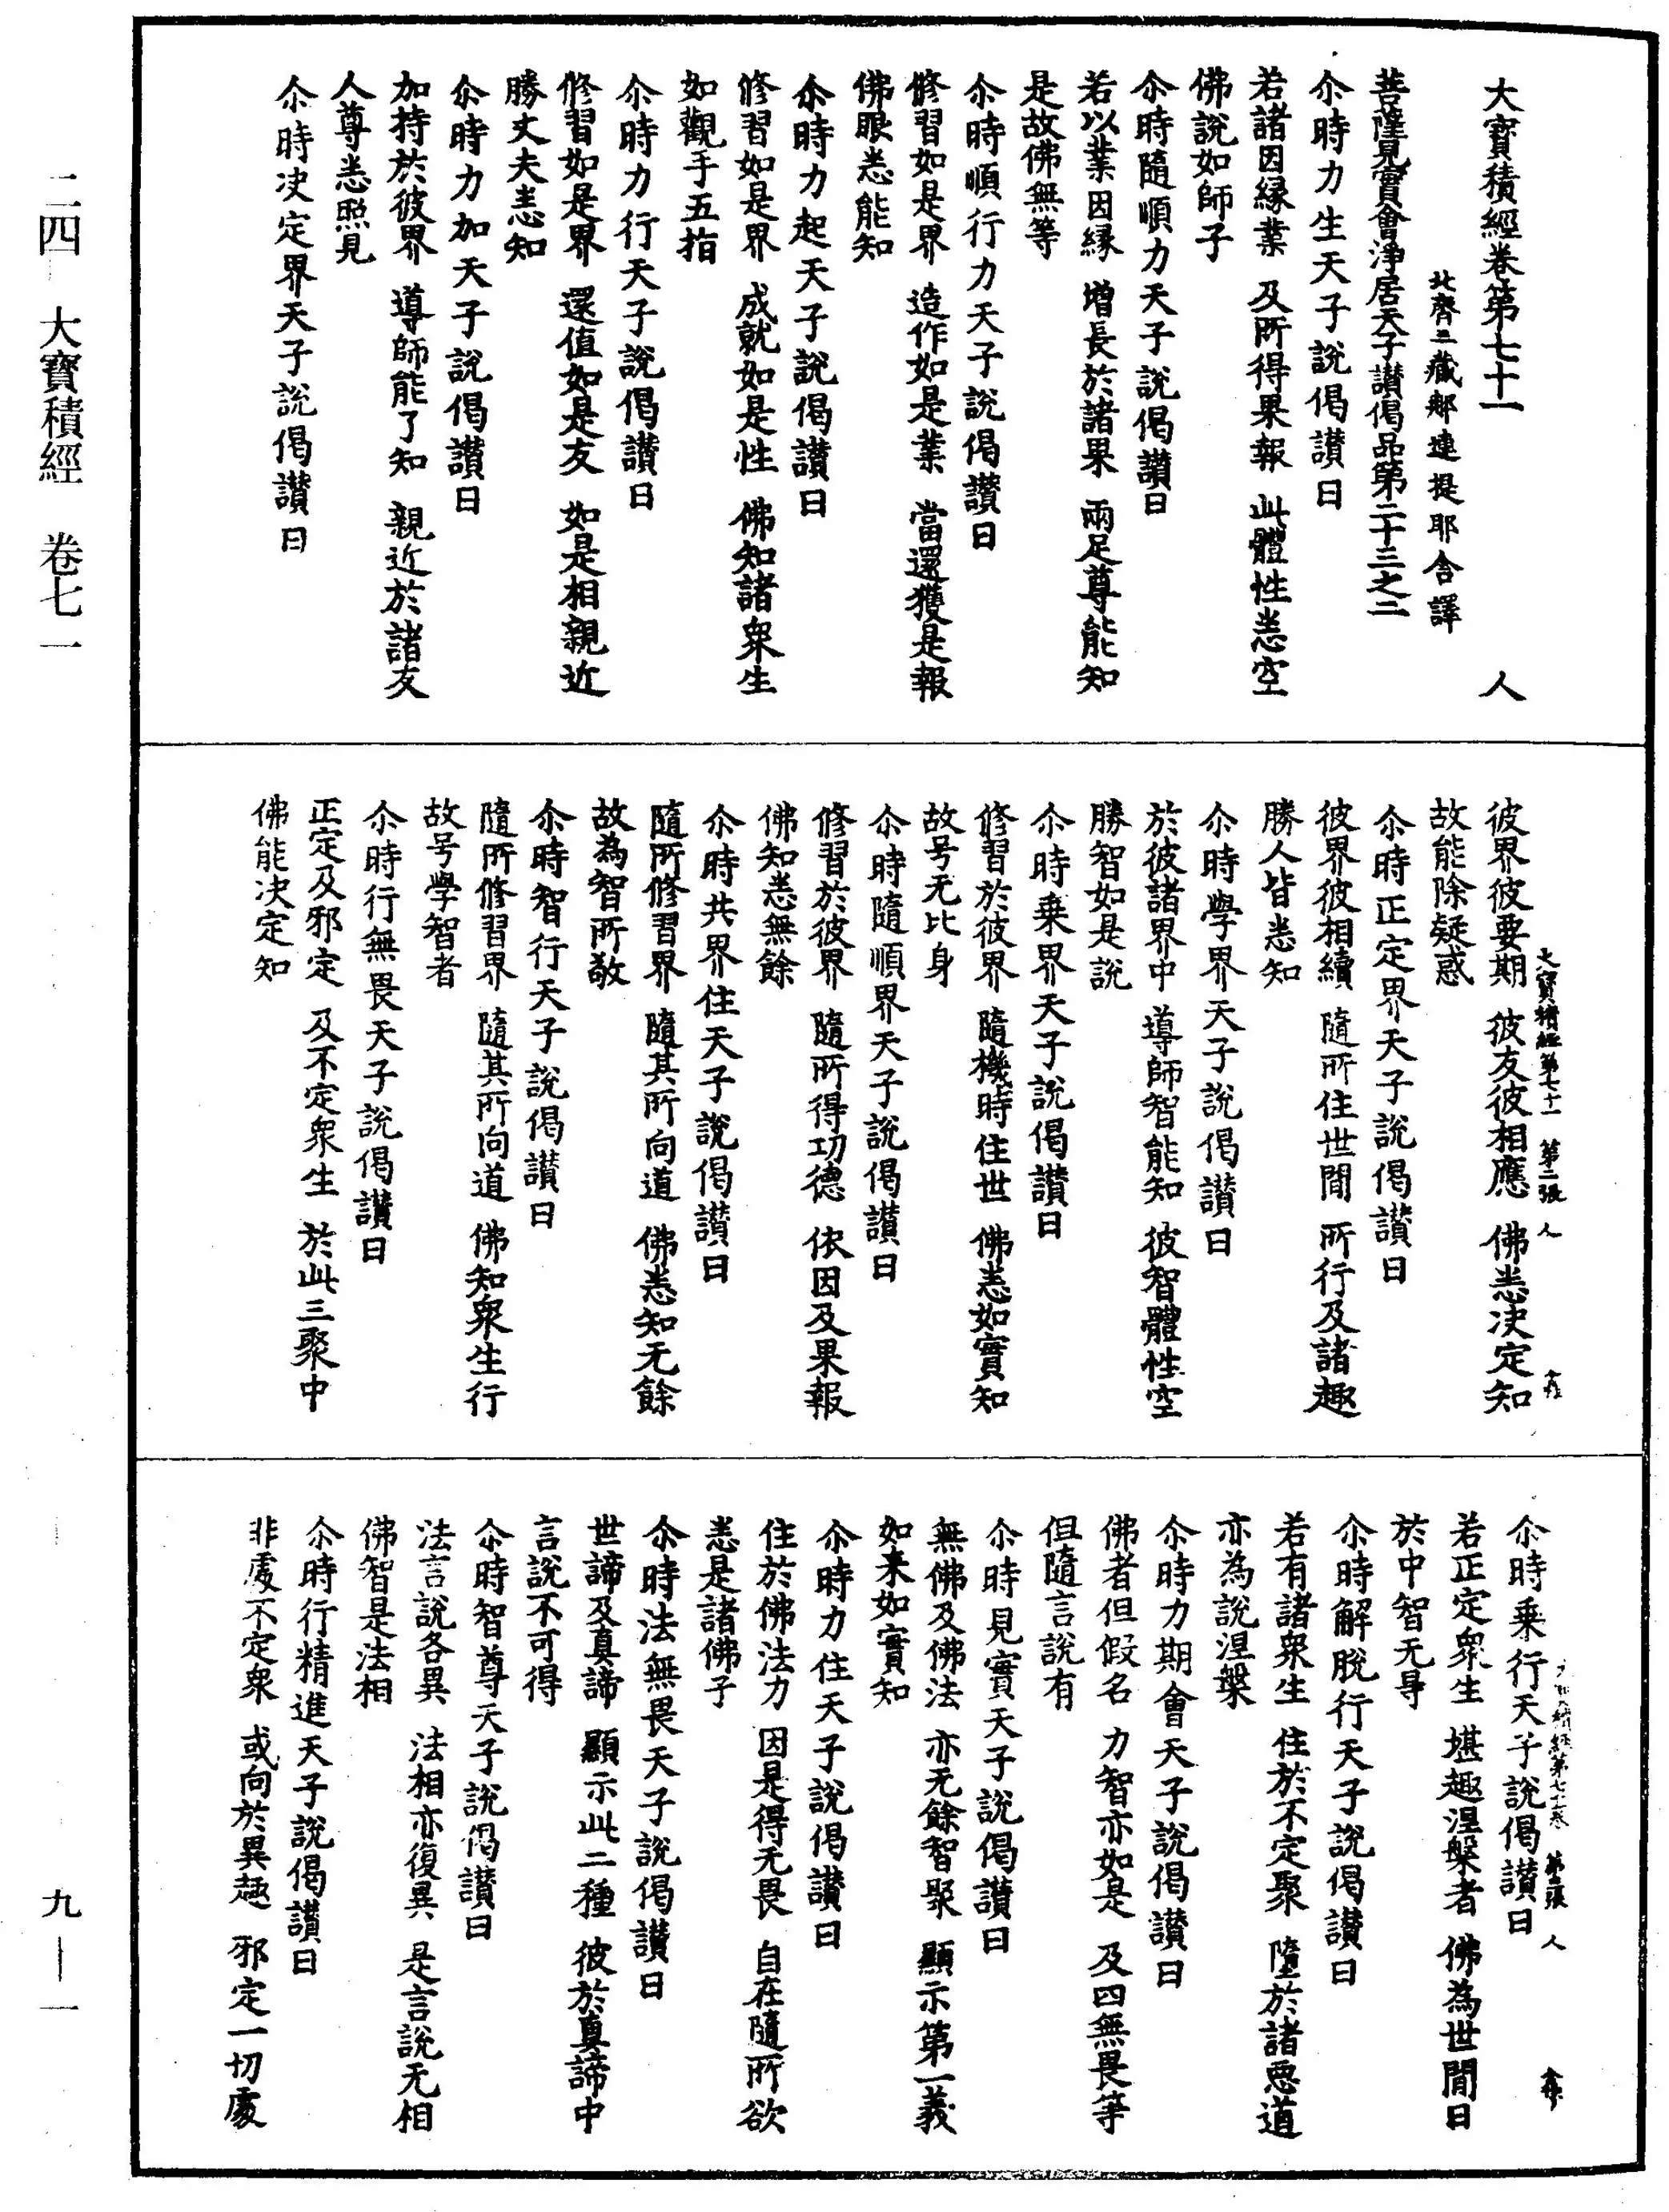 大寶積經卷第七十一　人
北齊三藏那連提耶舍譯
菩薩見實會淨居天子讃偈品第二十三之二
尒時力生天子說偈讃曰
若諸因緣業　及所得果報　此體性悉空
佛說如師子
尒時隨順力天子說偈讃曰
若以業因緣　增長於諸果　兩足尊能知
是故佛無等
尒時順行力天子說偈讃曰
修習如是界　造作如是業　當還獲是報
佛眼悉能知
尒時力起天子說偈讃曰
修習如是界　成就如是性　佛知諸衆生
如觀手五指
尒時力行天子說偈讃曰
修習如是界　還值如是友　如是相親近
勝丈夫悉知
尒時力加天子說偈讃曰
加持於彼界　導師能了知　親近於諸友
人尊悉照見
尒時決定界天子說偈讃曰
大寶積經第七十一　第二張　人
彼界彼要期　彼友彼相應　佛悉決定知
故能除疑惑
尒時正定界天子說偈讃曰
彼界彼相續　隨所住世間　所行及諸趣
勝人皆悉知
尒時學界天子說偈讃曰
於彼諸界中　導師智能知　彼智體性空
勝智如是說
尒時乘界天子說偈讃曰
修習於彼界　隨機時住世　佛悉如實知
故号无比身
尒時隨順界天子說偈讃曰
修習於彼界　隨所得功德　依因及果報
佛知悉無餘
尒時共界住天子說偈讃曰
隨所修習界　隨其所向道　佛悉知无餘
故為智所敬
尒時智行天子說偈讃曰
隨所修習界　隨其所向道　佛知衆生行
故号學智者
尒時行無畏天子說偈讃曰
正定及邪定　及不定衆生　於此三聚中
佛能決定知
經第七十　第三張　人
尒時乘行天子說偈讃曰
若正定衆生　堪趣涅槃者　佛為世間日
於中智无㝵
尒時解脫行天子說偈讃曰
若有諸衆生　住於不定聚　墮於諸惡道
亦為說涅槃
尒時力期會天子說偈讃曰
佛者但假名　力智亦如是　及四無畏等
但隨言說有
尒時見實天子說偈讃曰
無佛及佛法　亦无餘智聚　顯示第一義
如來如實知
尒時力住天子說偈讃曰
住於佛法力　因是得无畏　自在隨所欲
悉是諸佛子
尒時法無畏天子說偈讃曰
世諦及真諦　顯示此二種　彼於真諦中
言說不可得
尒時智尊天子說偈讃曰
法言說各異　法相亦復異　是言說无相
佛智是法相
尒時行精進天子說偈讃曰
非處不定衆　或向於異趣　邪定一切處
二四　大寶積經　卷七一
九—一